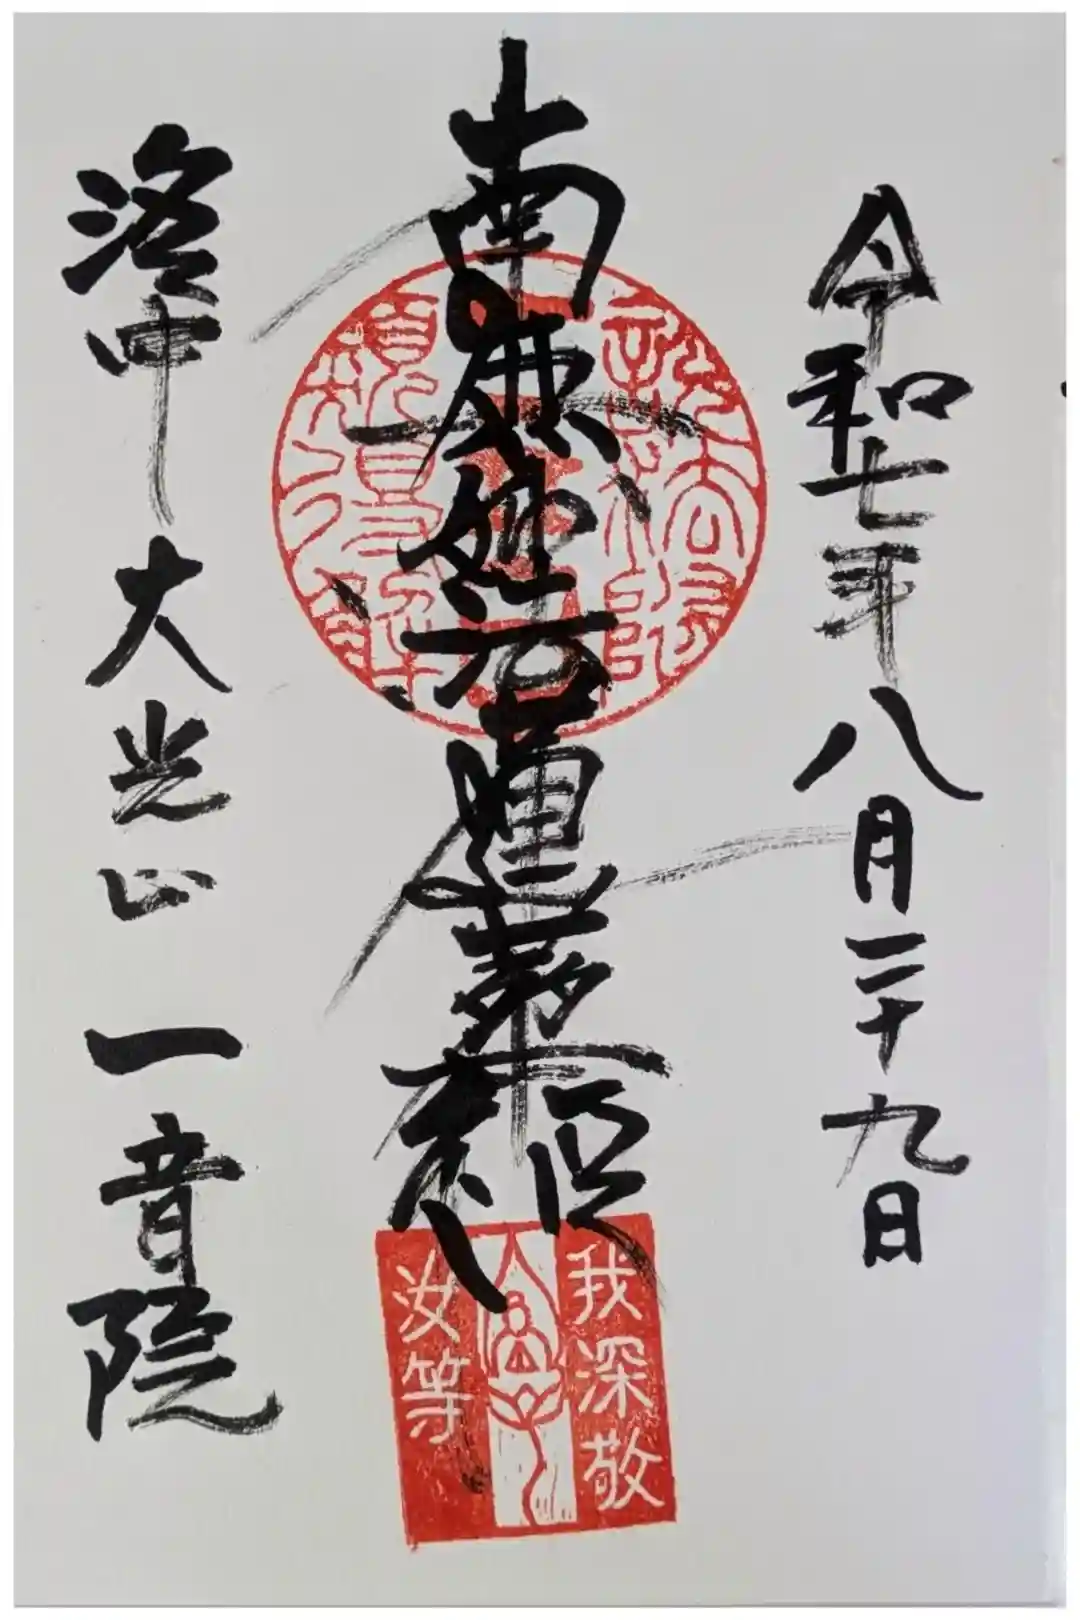 令和七年八月二十九日
南無妙法蓮華経
洛中 大光山 一音院
我深敬
汝等